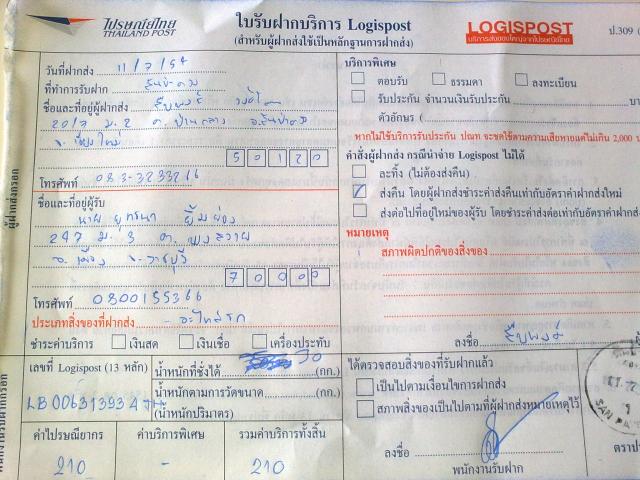 ไปรษณีย์ไทย
THAILAND POST
ใบรับฝากบริการ Logispost
(สำหรับผู้ฝากส่งใช้เป็นหลักฐานการฝากส่ง)
LOGISPOST
บริการส่งของใหญ่จากไปรษณีย์ไทย
ป.309
ผู้ฝากส่งกรอก
วันที่ฝากส่ง 11/7/54
ที่ทำการรับฝาก สันป่าตอง
ชื่อและที่อยู่ผู้ฝากส่ง สืบพงษ์
ม.2 ต.บ้านกลาง อ.สันป่าตอง
จ.เชียงใหม่
50120
โทรศัพท์ 083-3233266
ชื่อและที่อยู่ผู้รับ
นาย
247 ม.3 ต.พงสวาย
อ.เมือง จ.ราชบุรี
70000
โทรศัพท์ 0800155366
ประเภทสิ่งของที่ฝากส่ง - อะไหล่รถ
ชำระค่าบริการ เงินสด เงินเชื่อ เครื่องประทับ
บริการพิเศษ
ตอบรับ ธรรมดา ลงทะเบียน
รับประกัน จำนวนเงินรับประกัน
ตัวอักษร (
หากไม่ใช้บริการรับประกัน ปณท จะชดใช้ตามความเสียหายแต่ไม่เกิน 2,000
คำสั่งผู้ฝากส่ง กรณีนำจ่าย Logispost ไม่ได้
ละทิ้ง (ไม่ต้องส่งคืน)
ส่งคืน โดยผู้ฝากส่งชำระค่าส่งคืนเท่ากับอัตราค่าฝากส่งใหม่
ส่งต่อไปที่อยู่ใหม่ของผู้รับ โดยชำระค่าส่งต่อเท่ากับอัตราค่าฝากส่ง
หมายเหตุ
สภาพผิดปกติของสิ่งของ
ลงชื่อ สืบพงษ์
พนักงานรับฝากกรอก
เลขที่ Logispost (13 หลัก)
น้ำหนักที่ชั่งได้ (กก.)
น้ำหนักตามการวัดขนาด (กก.)
(น้ำหนักปริมาตร)
ค่าไปรษณียากร ค่าบริการพิเศษ รวมค่าบริการทั้งสิ้น
210 - 210
ได้ตรวจสอบสิ่งของที่รับฝากแล้ว
เป็นไปตามเงื่อนไขการฝากส่ง
สภาพสิ่งของเป็นไปตามที่ผู้ฝากส่งหมายเหตุไว้
ลงชื่อ
พนักงานรับฝาก